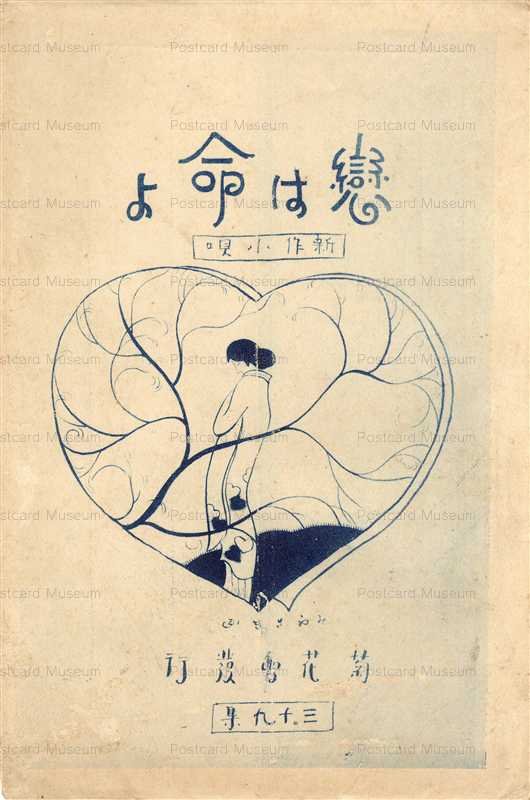 戀は命よ
新作小唄
菊花會發行
三十九集
Postcard Museum